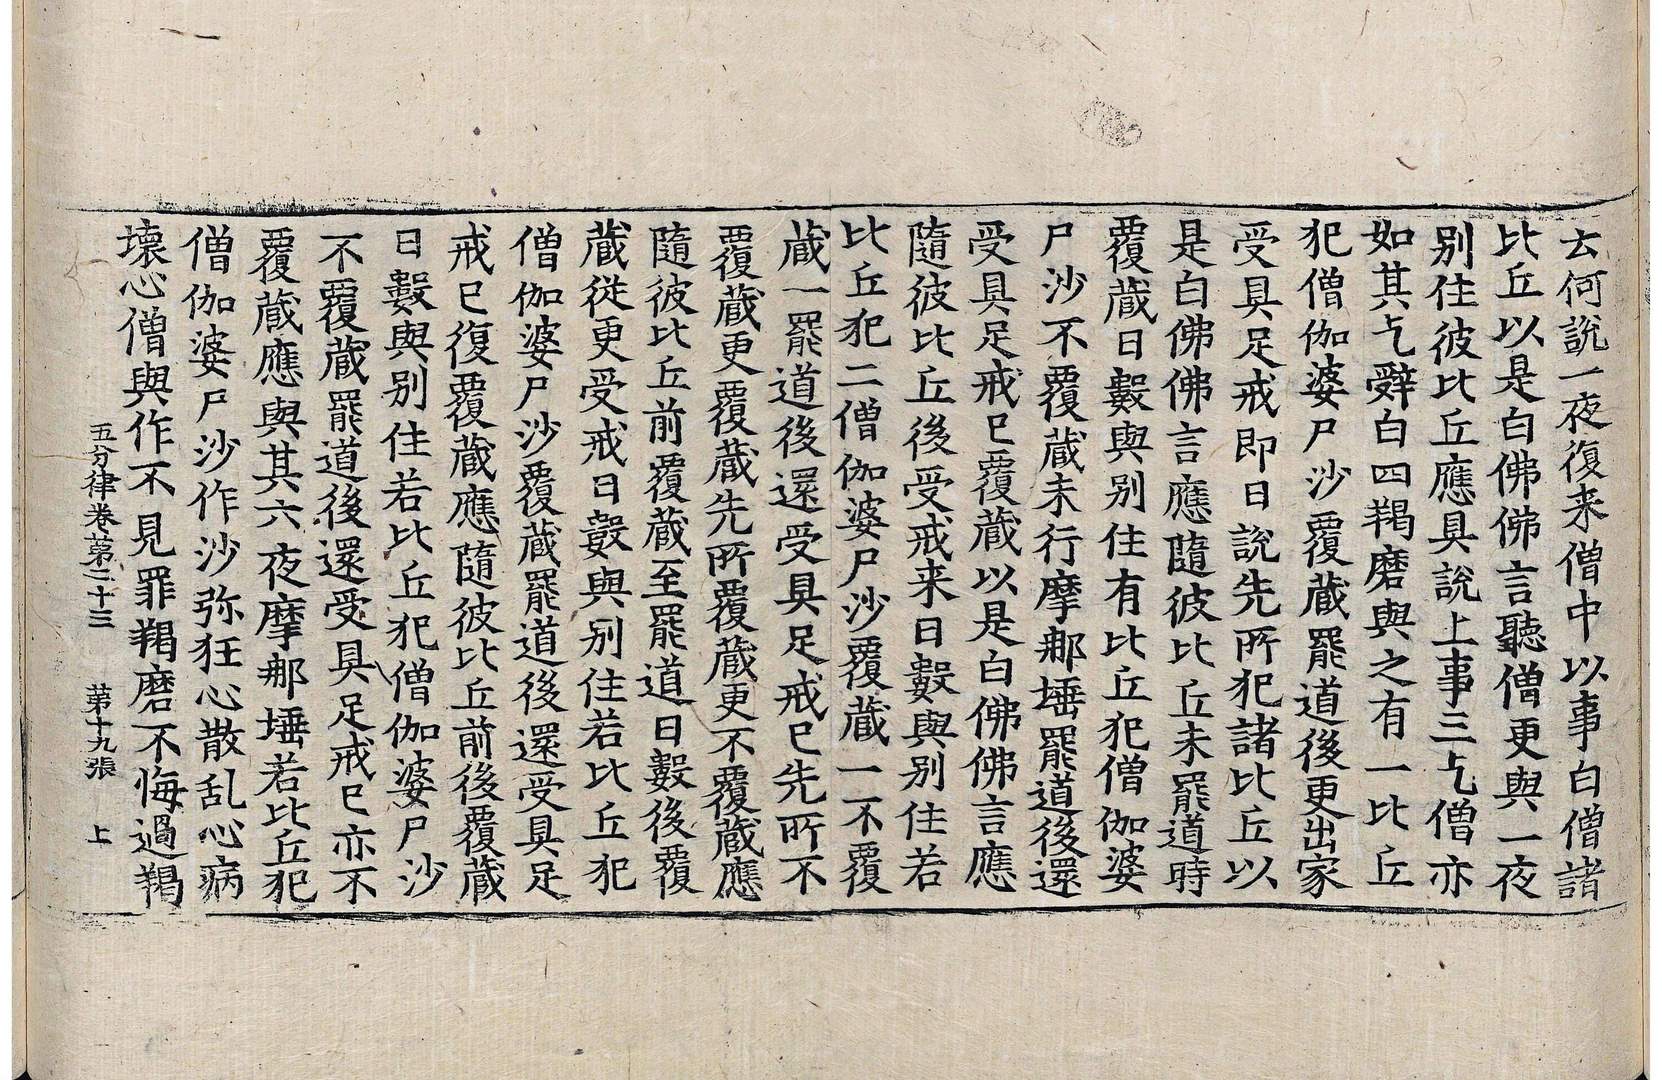 去何說一夜復来僧中以事白僧諸
比丘以是白佛佛言聽僧更與一夜
別住彼比丘應具說上事三乞僧亦
如其乞辤白四羯磨與之有一比丘
犯僧伽婆尸沙覆蔵罷道後更出家
受具足戒即日說先所犯諸比丘以
是白佛佛言應隨彼比丘未罷道時
覆蔵日數與別住有比丘犯僧伽婆
尸沙不覆蔵未行摩那埵罷道後還
受具足戒已覆蔵以是白佛佛言應
隨彼比丘後受戒来日數與別住若
比丘犯二僧伽婆尸沙覆蔵一不覆
蔵一罷道後還受具足戒已先所不
覆蔵更覆蔵先所覆蔵更不覆蔵應
隨彼比丘前覆蔵至罷道日數後覆
蔵從更受戒日數與別住若比丘犯
僧伽婆尸沙覆蔵罷道後還受具足
戒已復覆蔵應隨彼比丘前後覆蔵
日數與別住若比丘犯僧伽婆尸沙
不覆蔵罷道後還受具足戒已亦不
覆蔵應與其六夜摩那埵若比丘犯
僧伽婆尸沙作沙弥狂心散乱心病
壞心僧與作不見罪羯磨不悔過羯
五分律卷第二十三 第十九張 上